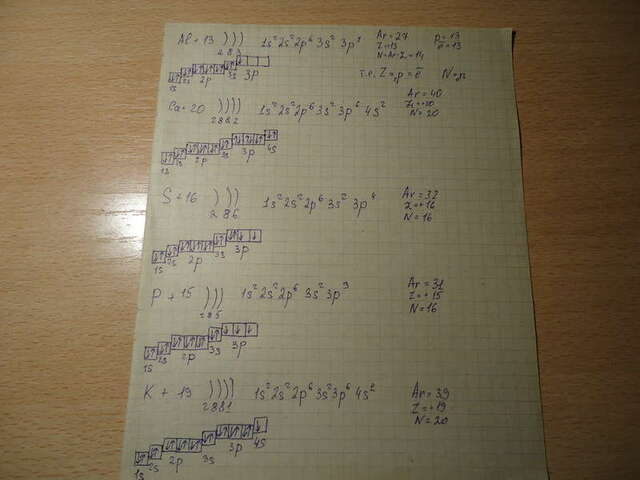 Al + 13 ))) 1s² 2s² 2p⁶ 3s² 3p¹ Ar = 27 p = 13
2 8 3 Z = 13 e = 13
N = Ar - Z = 14
1s 2s 2p 3s 3p т.е. Z = p = e N = n
Ca + 20 )))) 1s² 2s² 2p⁶ 3s² 3p⁶ 4s² Ar = 40
2 8 8 2 Z = +20
N = 20
1s 2s 2p 3s 3p 4s
S + 16 ))) 1s² 2s² 2p⁶ 3s² 3p⁴ Ar = 32
2 8 6 Z = +16
N = 16
1s 2s 2p 3s 3p
P + 15 ))) 1s² 2s² 2p⁶ 3s² 3p³ Ar = 31
2 8 5 Z = +15
N = 16
1s 2s 2p 3s 3p
K + 19 )))) 1s² 2s² 2p⁶ 3s² 3p⁶ 4s¹ Ar = 39
2 8 8 1 Z = +19
N = 20
1s 2s 2p 3s 3p 4s